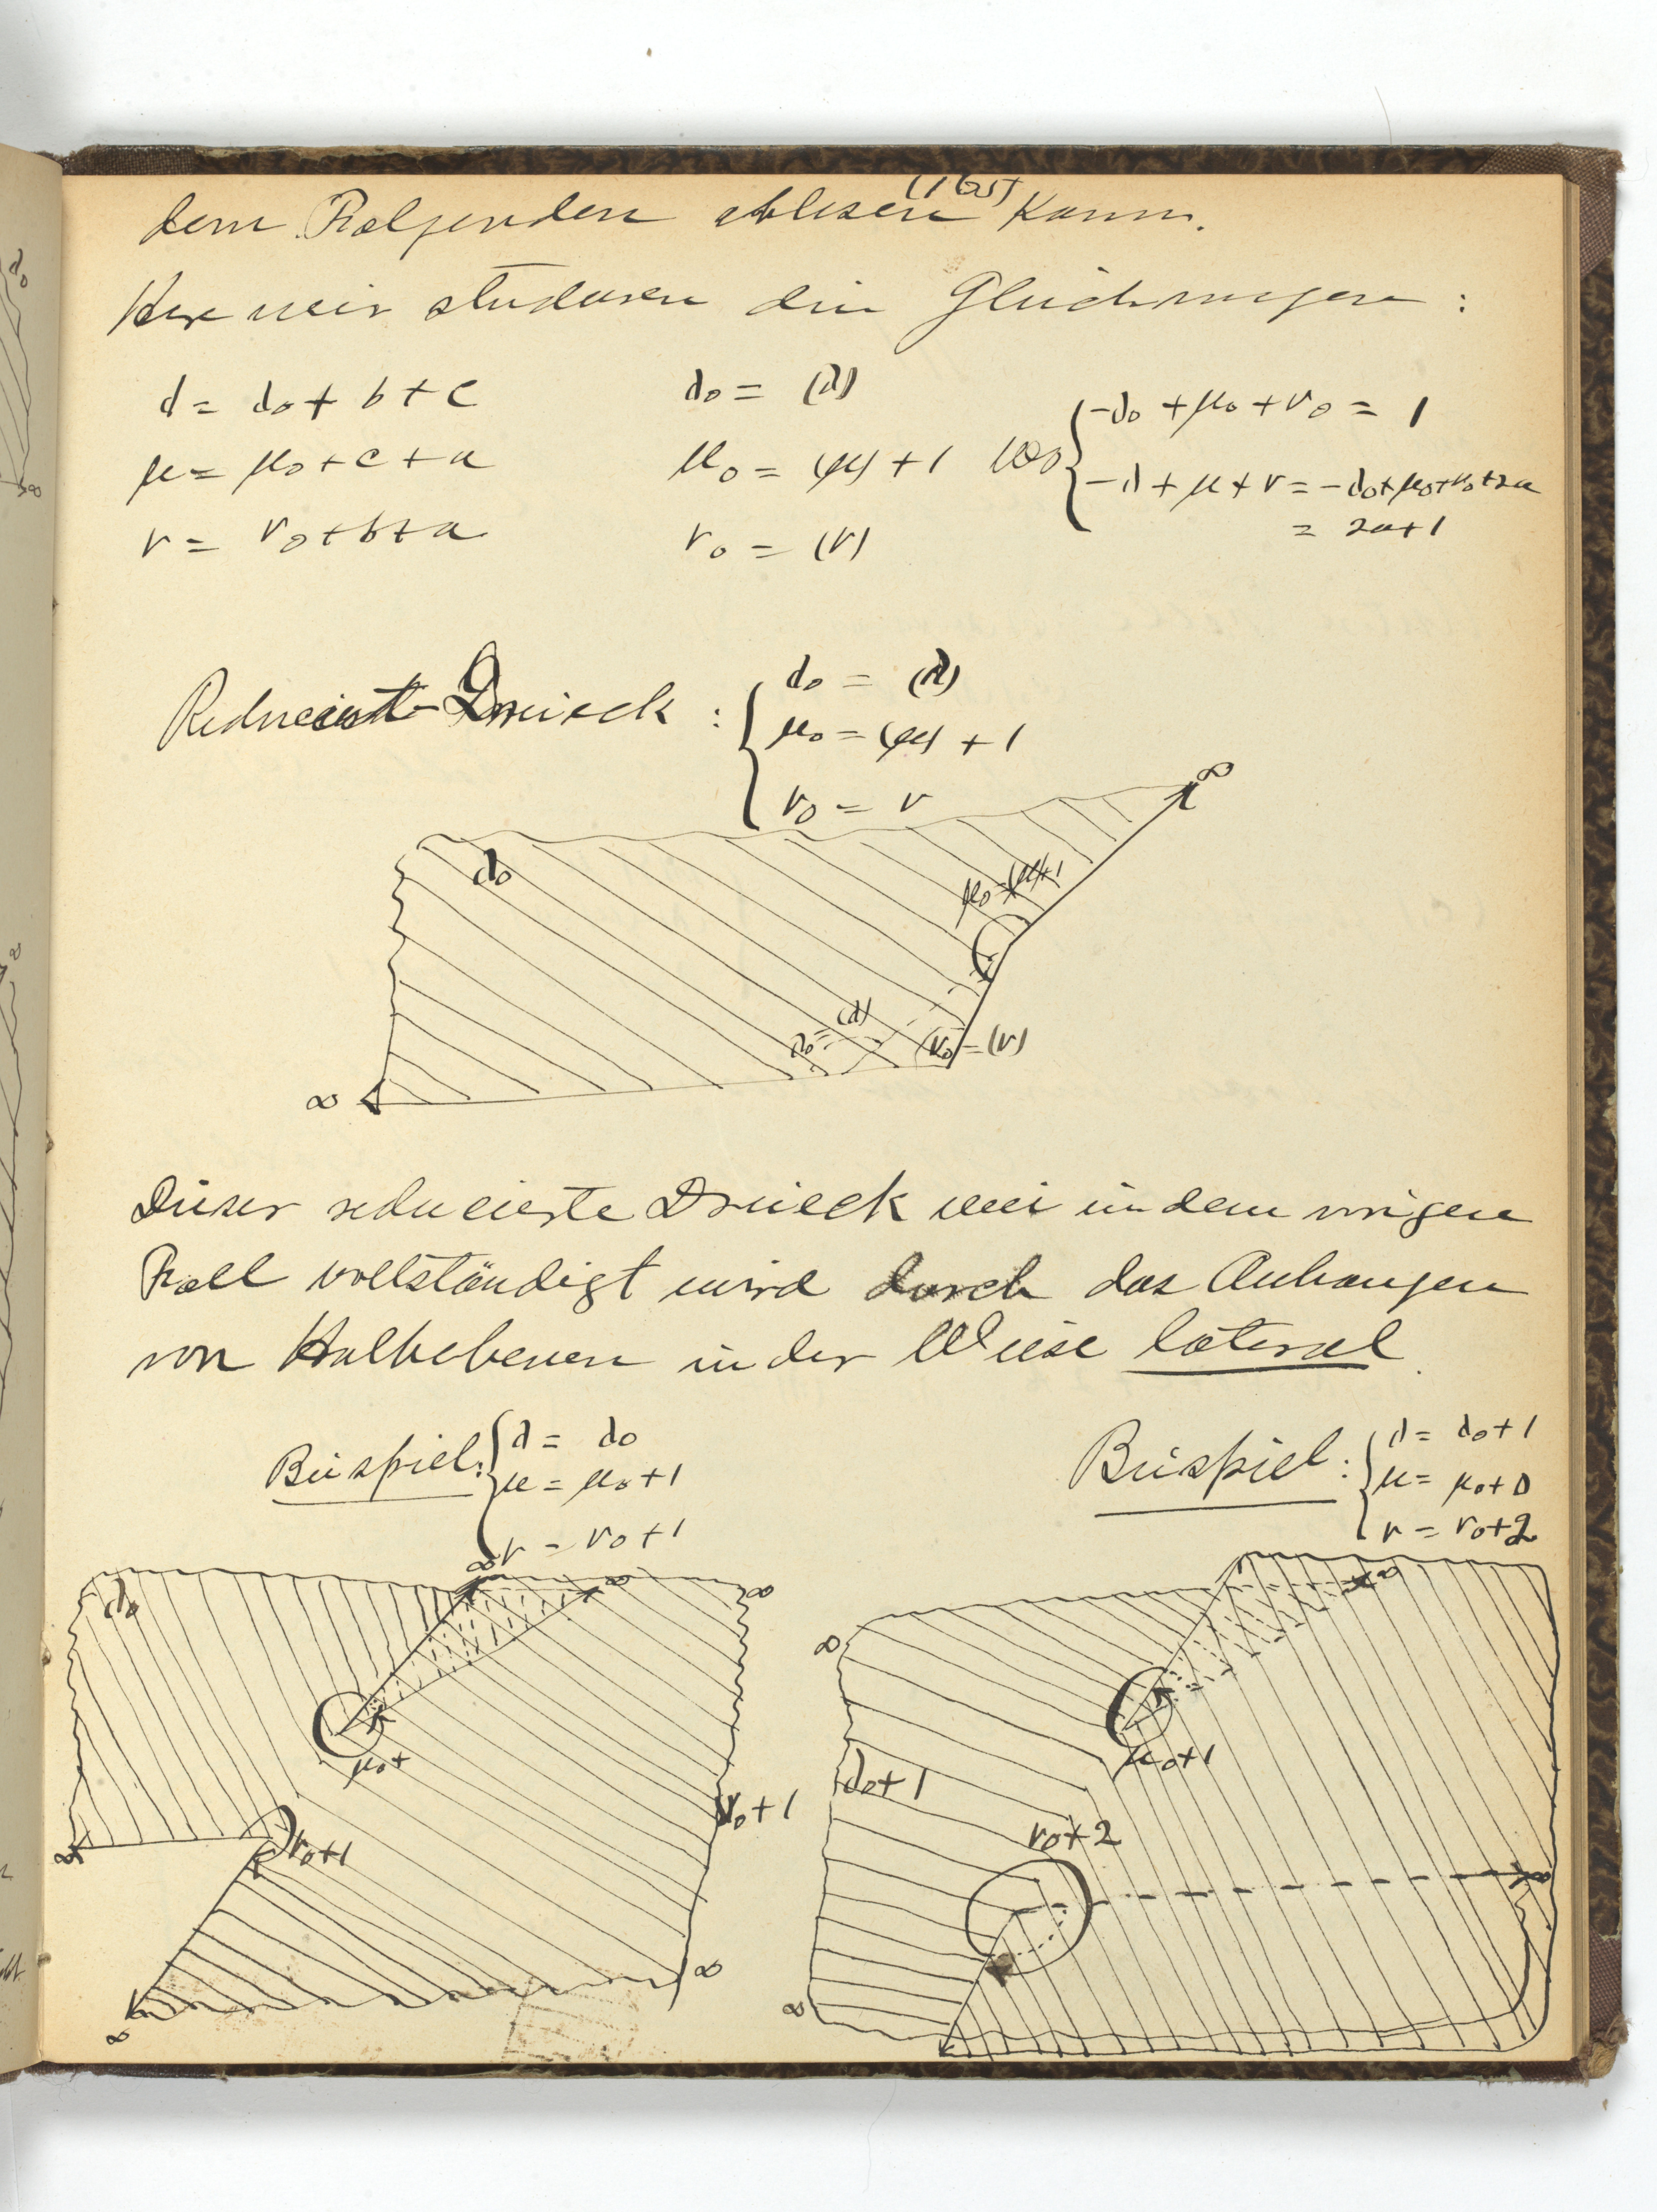 (165)
dem Folgenden ablesen kann.
Hier wir studieren die Gleichungen :
λ = λ₀ + b + c    λ₀ = (λ)    { -λ₀ + μ₀ + ν₀ = 1
μ = μ₀ + c + a    μ₀ = (μ) + 1    wo { -λ + μ + ν = -λ₀+μ₀+ν₀+2a
ν = ν₀ + b + a    ν₀ = (ν)    = 2a+1
Reducirt-Dreieck : { λ₀ = (λ)
μ₀ = (μ) + 1
ν₀ = ν
∞
λ₀
μ₀=(μ)+1
λ₀=(λ)
(ν₀)=(ν)
∞
Dieser reducierte Dreieck wie in dem vorigen
Fall vollständigt wird durch das Anhangen
von Halbebenen in der Weise lateral.
Beispiel: { λ = λ₀
μ = μ₀+1
ν = ν₀+1
∞ ∞ ∞
λ₀
μ₀+
ν₀+1
ν₀+1
∞
∞
∞
Beispiel : { λ = λ₀+1
μ = μ₀+0
ν = ν₀+2
∞
∞
μ₀+1
λ₀+1
ν₀+2
∞
∞